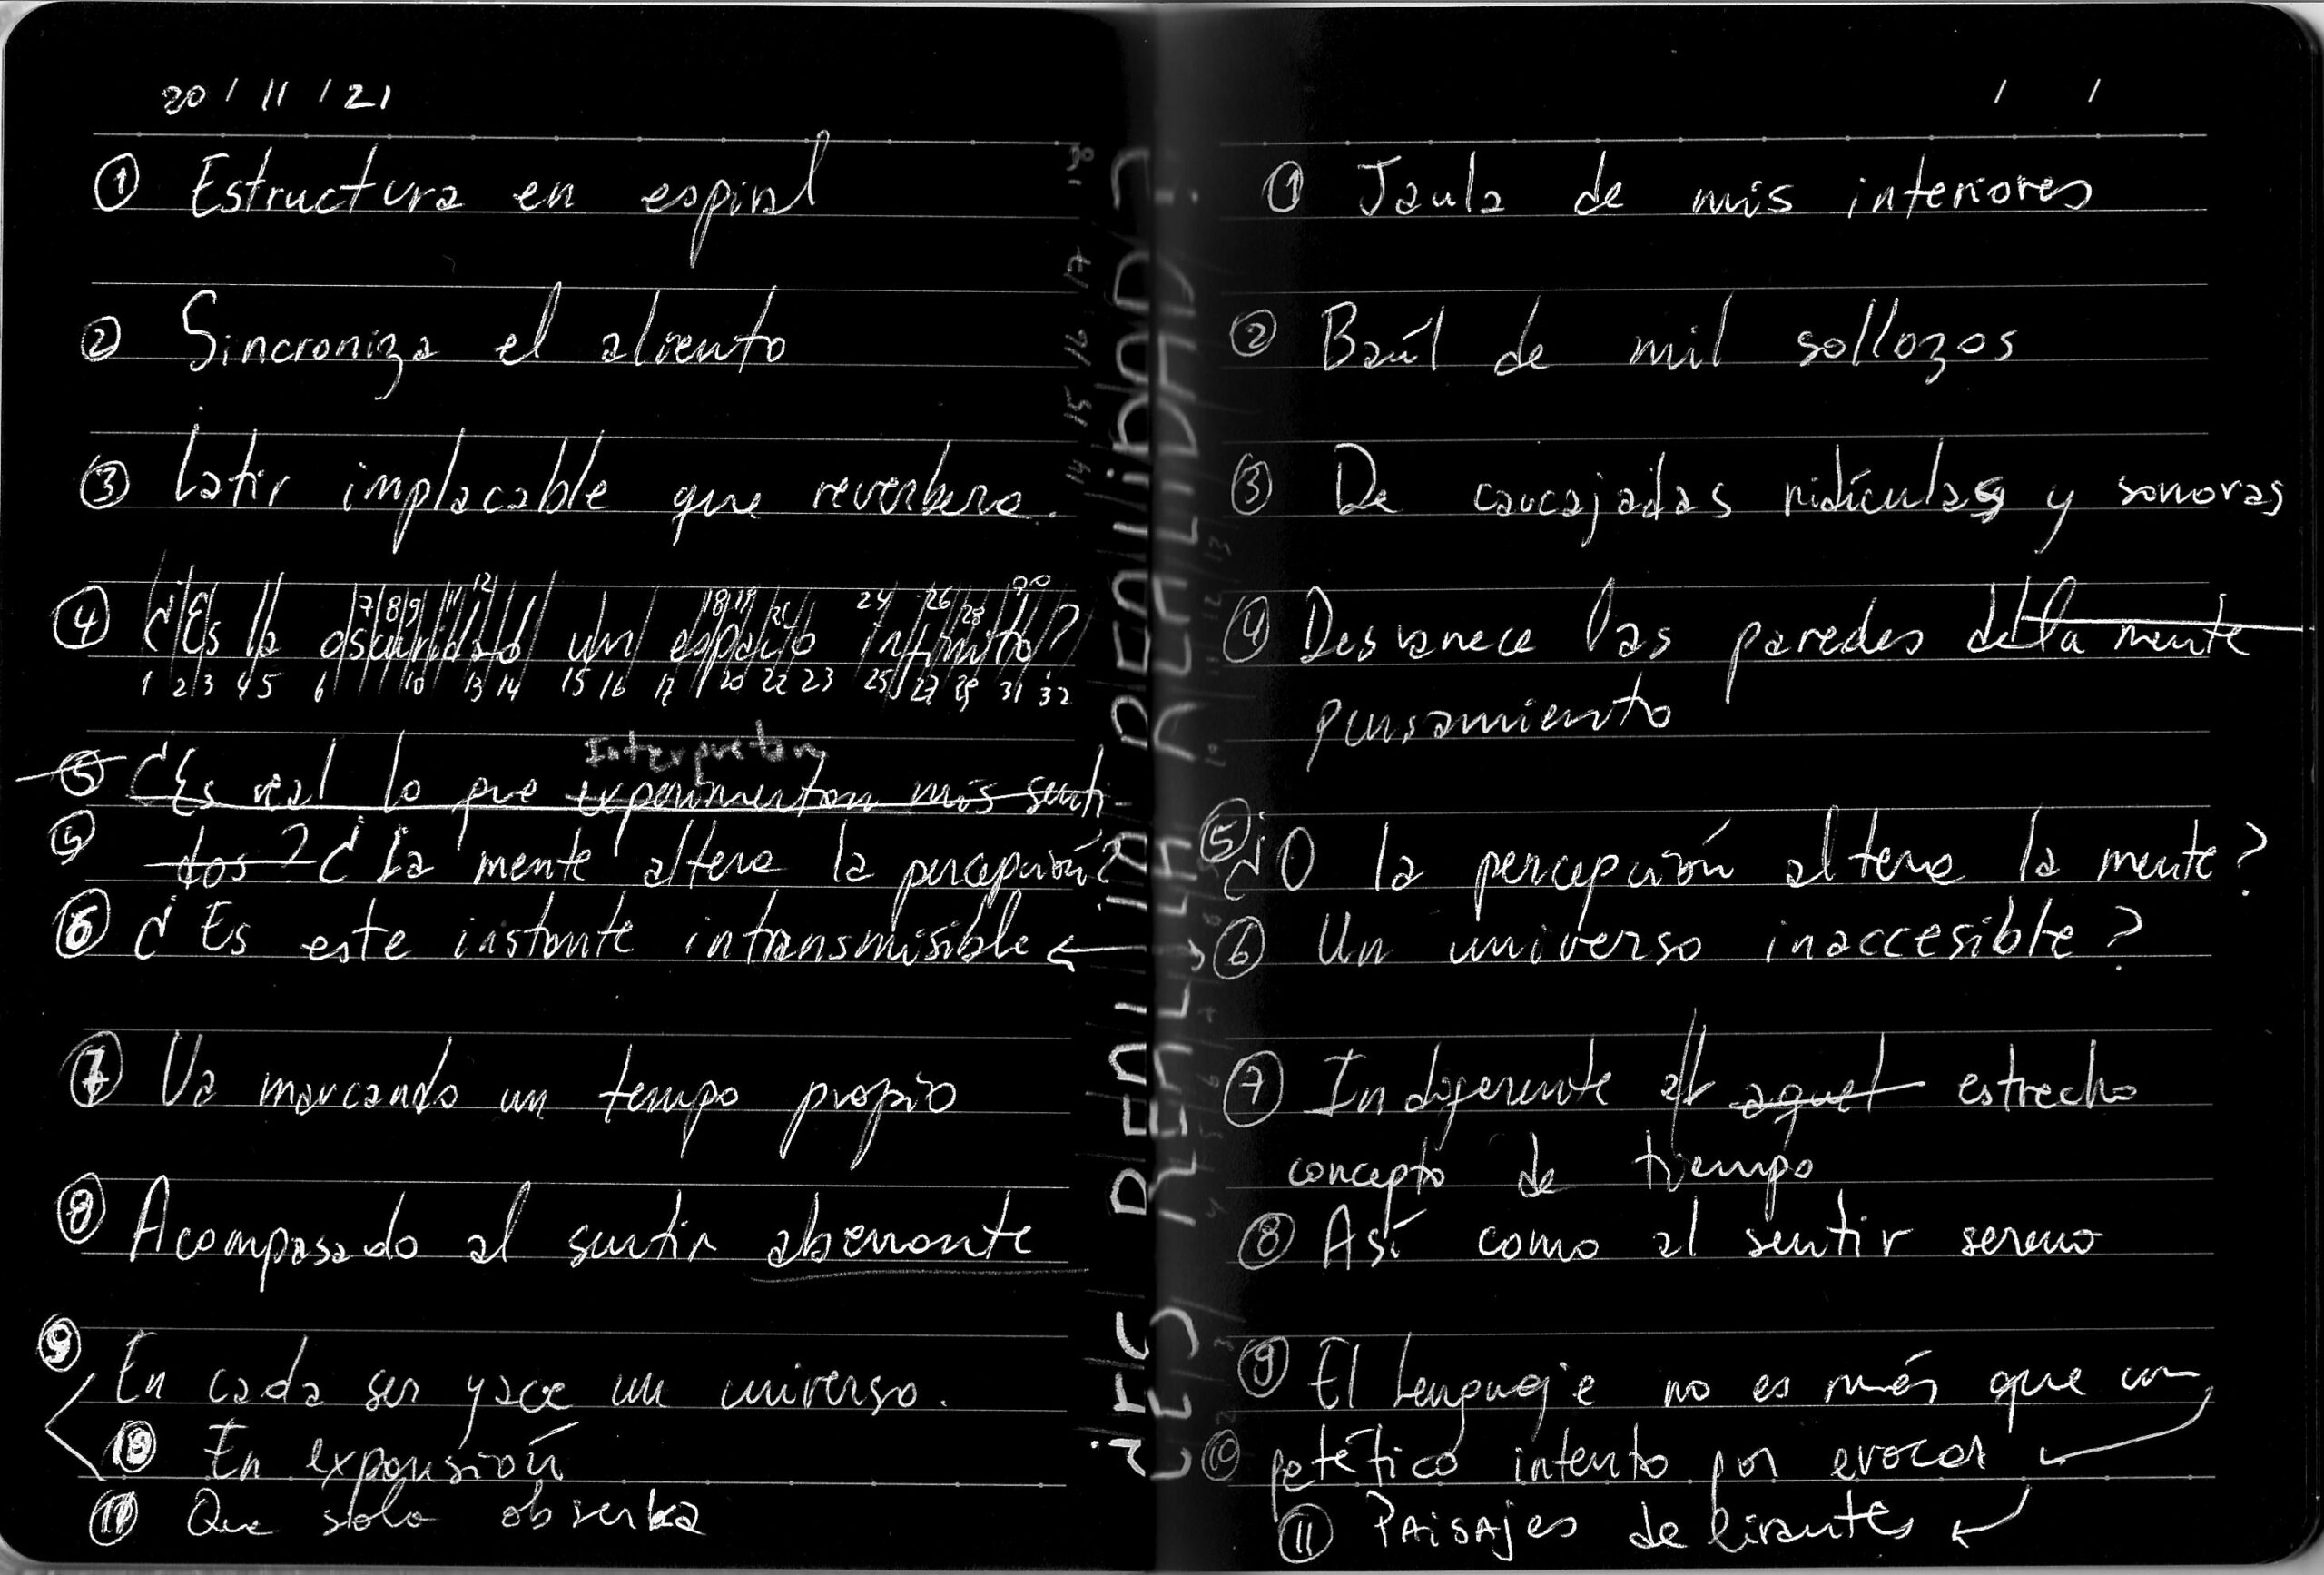 20 / 11 / 21
① Estructura en espiral
② Sincroniza el aliento
③ Latir implacable que reverbera.
7 8 9 11 12 18 19 21 24 26 28 30
④ ¿Es la oscuridad un espacio infinito?
1 2 3 4 5 6 10 13 14 15 16 17 20 22 23 25 27 29 31 32
Interpretan
⑤ ¿Es real lo que experimentan mis senti-
⑤ dos? ¿La mente altera la percepción?
⑥ ¿Es este instante intransmisible
⑦ Va marcando un tempo propio
⑧ Acompasado al sentir aberrante
⑨ En cada ser yace un universo.
⑩ En expansión
⑪ Que solo obserba
¿ES REALIDAD?
/ /
① Jaula de mis interiores
② Baúl de mil sollozos
③ De carcajadas ridículas y sonoras
④ Desvanece las paredes del la mente
pensamiento
⑤ ¿O la percepción altera la mente?
⑥ Un universo inaccesible?
⑦ Indiferente al aquel estrecho
concepto de tiempo
⑧ Así como al sentir sereno
⑨ El lenguaje no es más que un
⑩ patético intento por evocar
⑪ PAisAjes delirantes